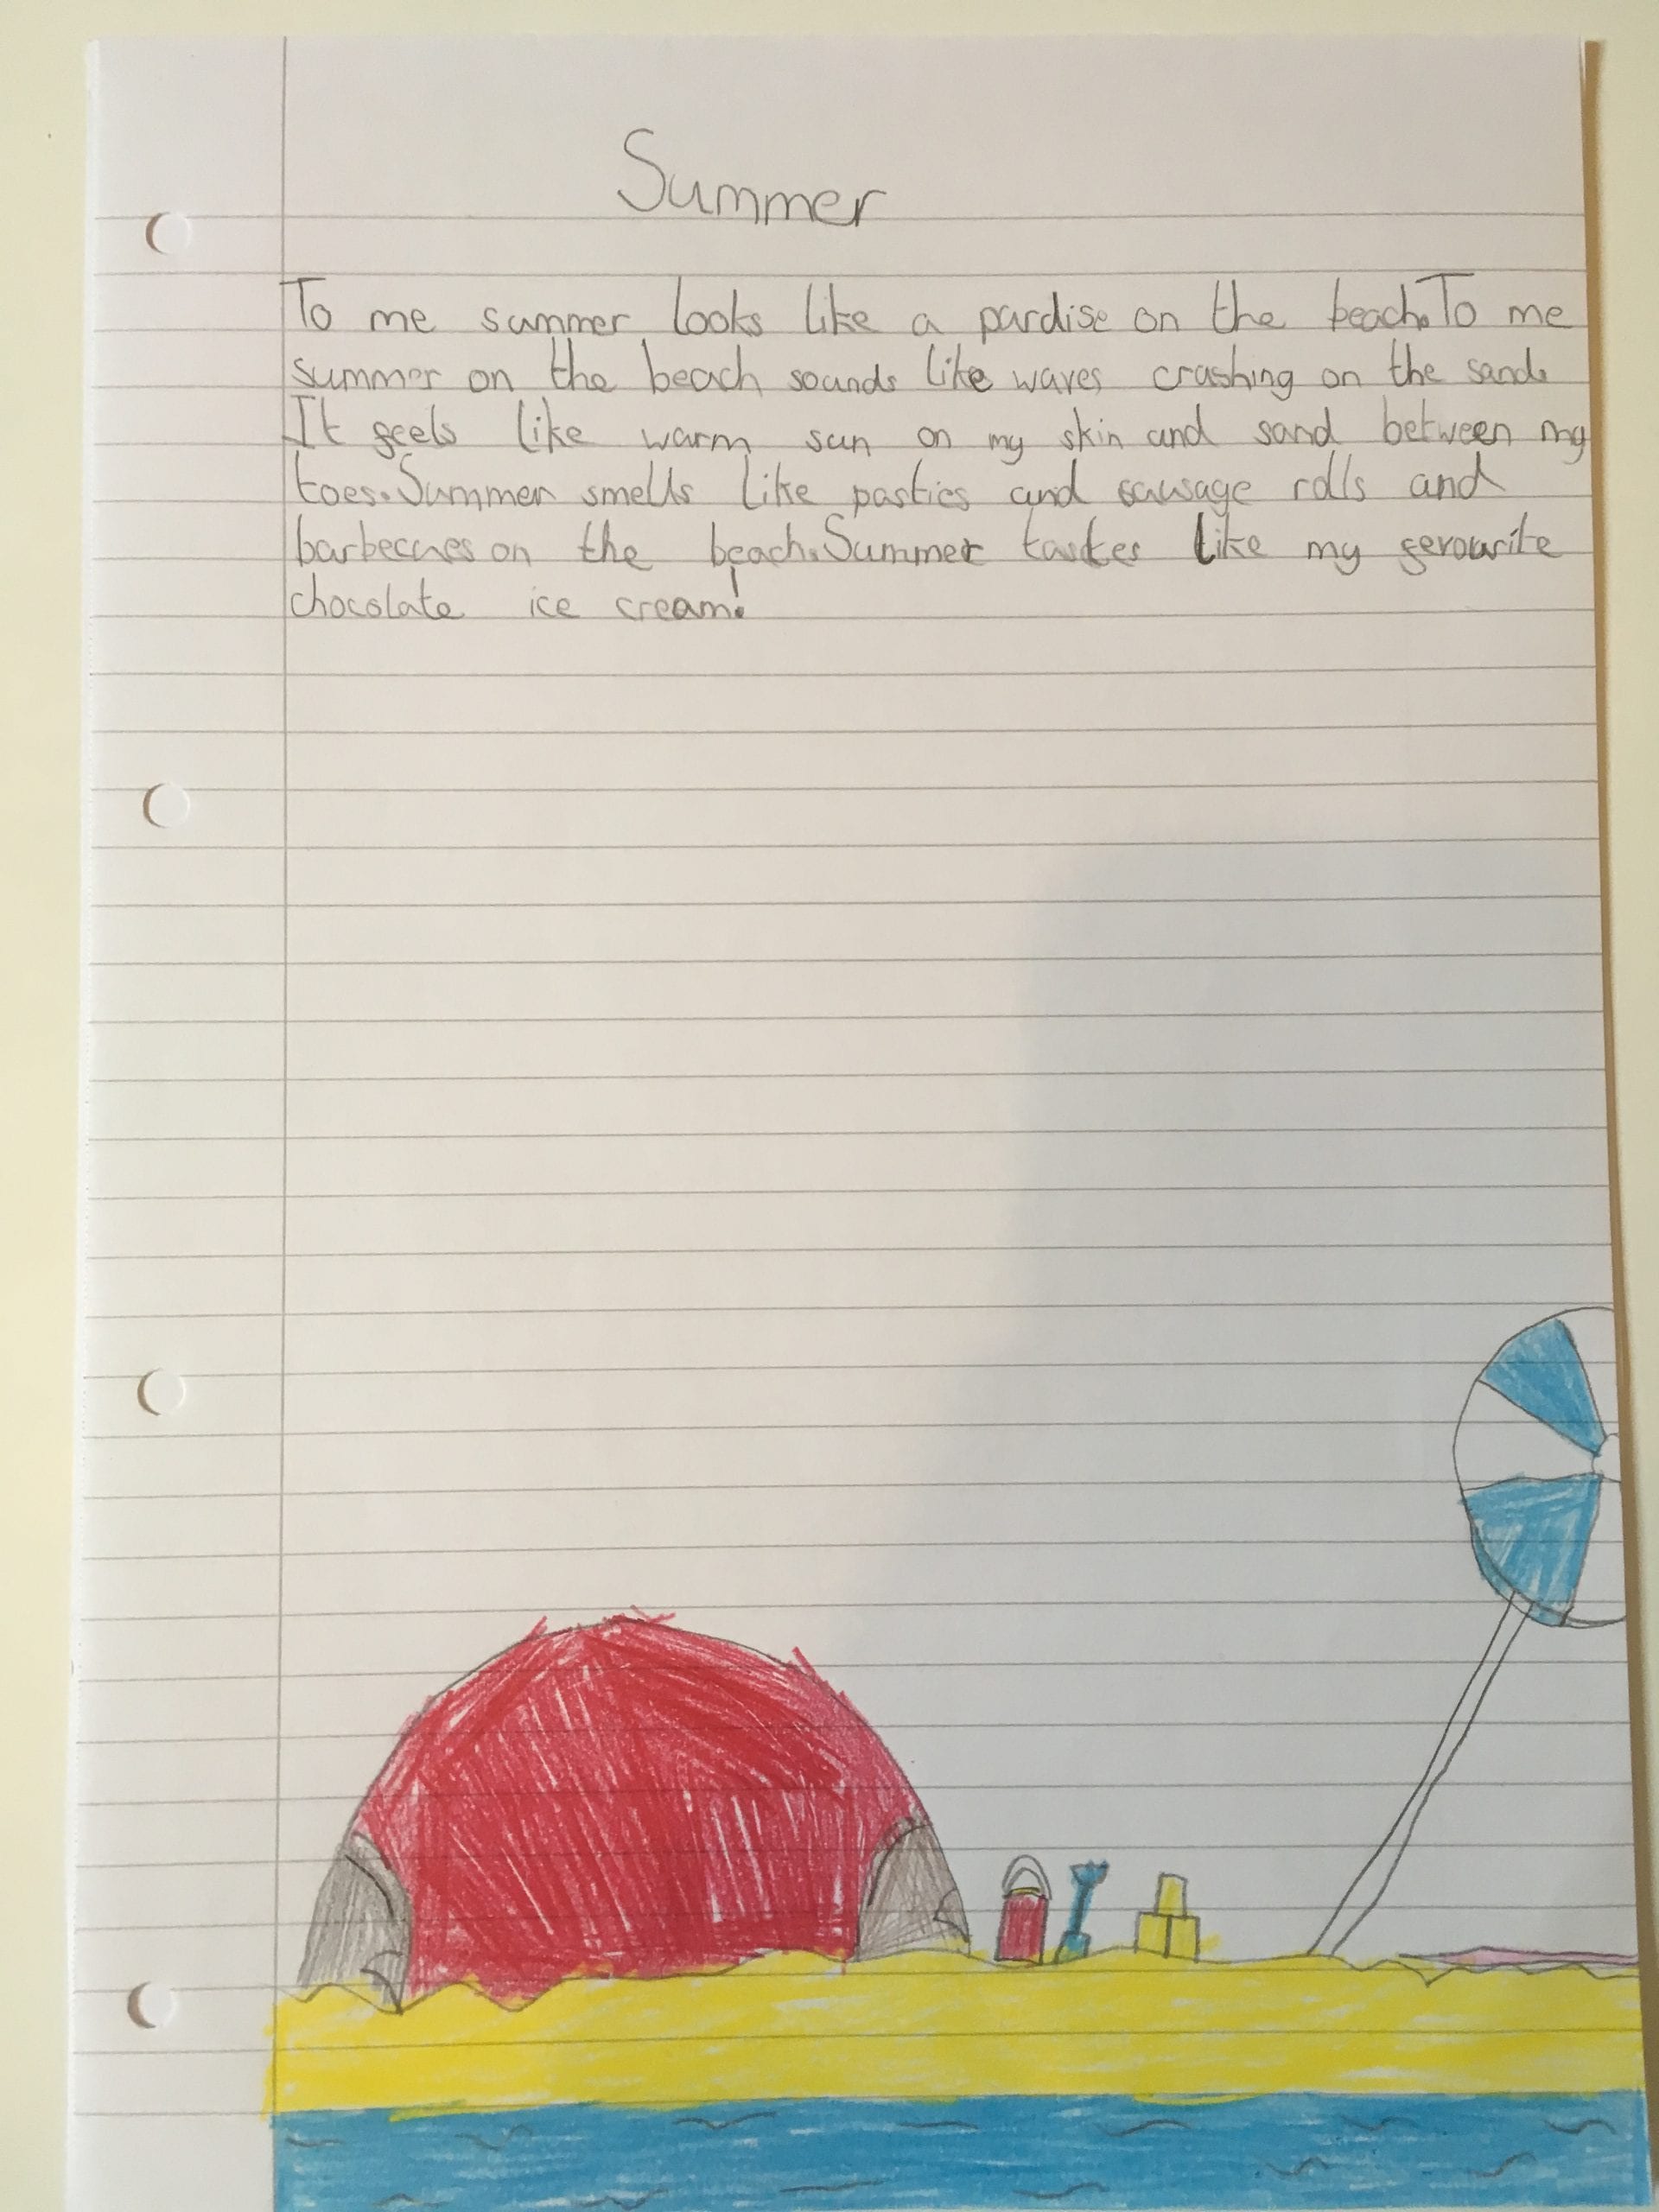 Summer
To me summer looks like a pardise on the beach. To me
summer on the beach sounds like waves crashing on the sand.
It feels like warm sun on my skin and sand between my
toes. Summer smells like pasties and sausage rolls and
barbecues on the beach. Summer tastes like my fevourite
chocolate ice cream!